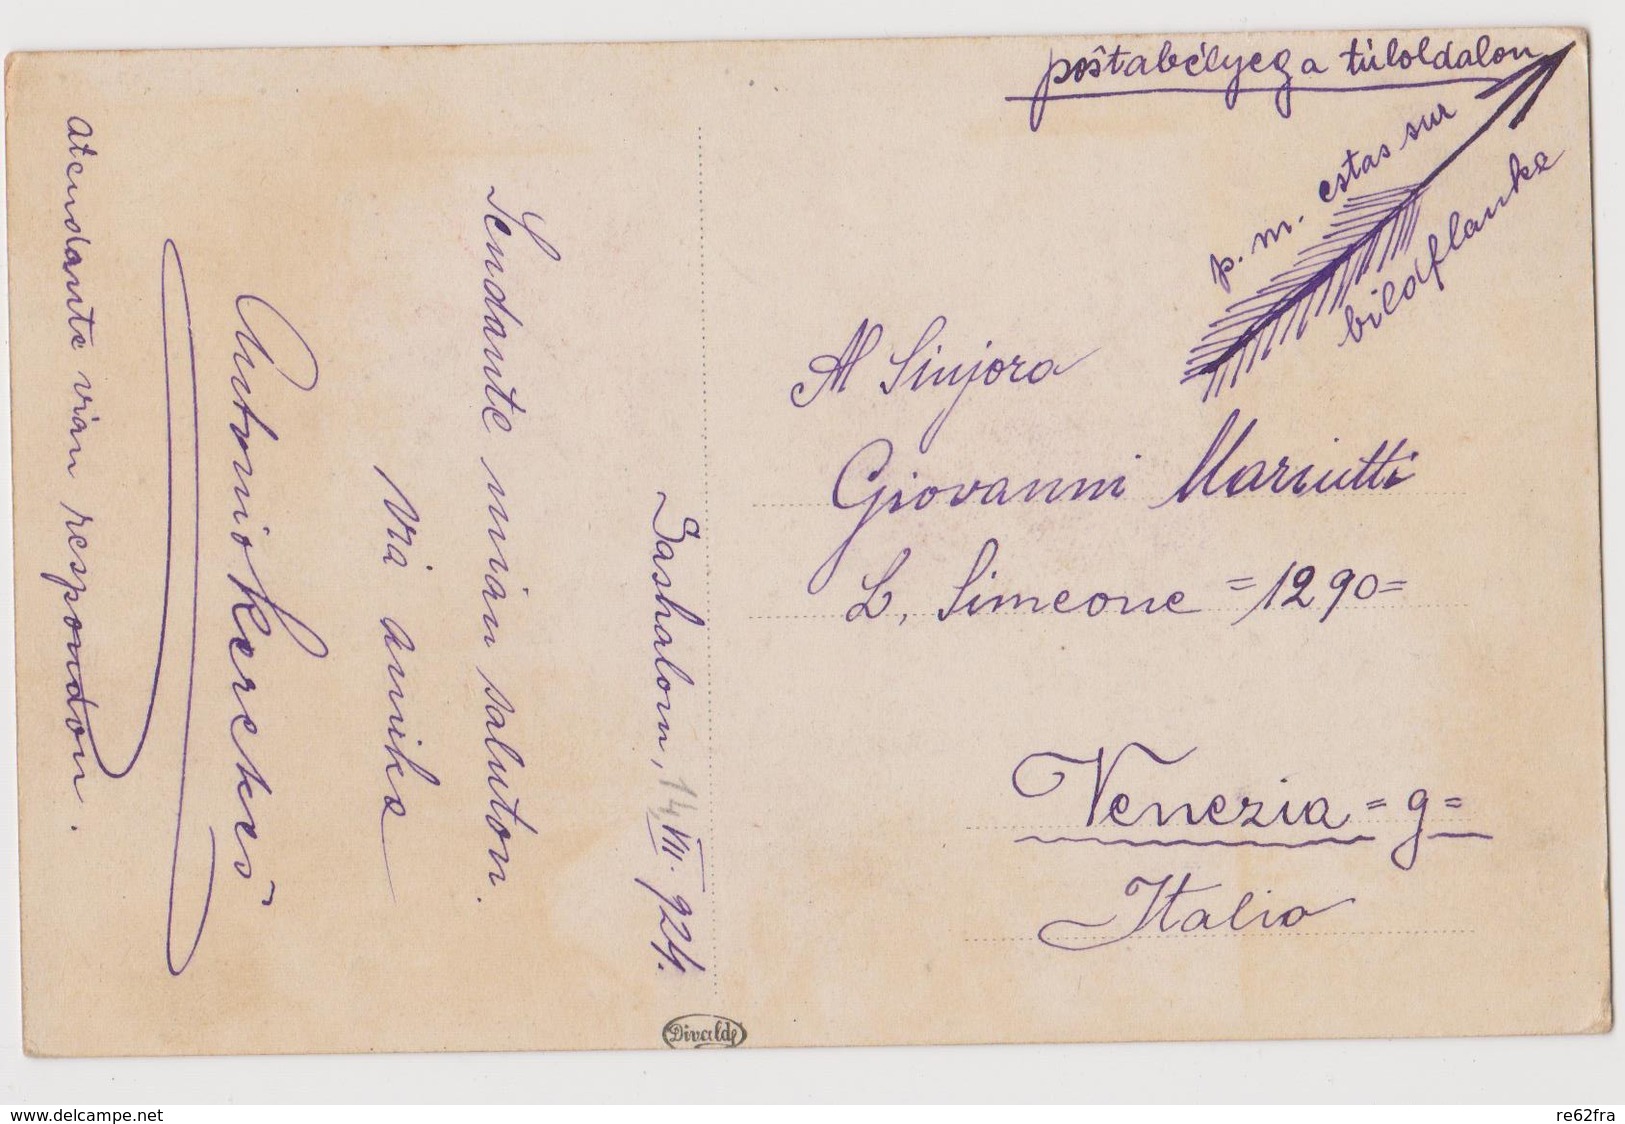 postabélyeg a túloldalon
p. m. estas sur
bildflanke
Al Sinjoro
Giovanni Mariutti
L. Simeone =1290=
Venezia =g=
Italio
Jashalom, 14. VII. 924.
Sendante mian saluton.
Via amike
Antonio Kerekes
atendante vian respondon.
Divald
www.delcampe.net
re62fra